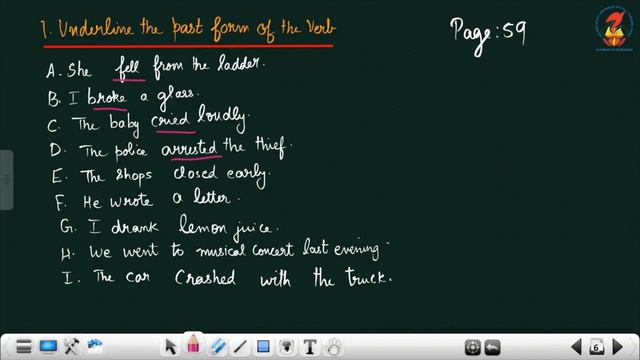 1. Underline the past form of the Verb
Page: 59
A. She fell from the ladder.
B. I broke a glass.
C. The baby cried loudly.
D. The police arrested the thief.
E. The shops closed early.
F. He wrote a letter.
G. I drank lemon juice.
H. We went to musical concert last evening.
I. The car Crashed with the truck.
T
6